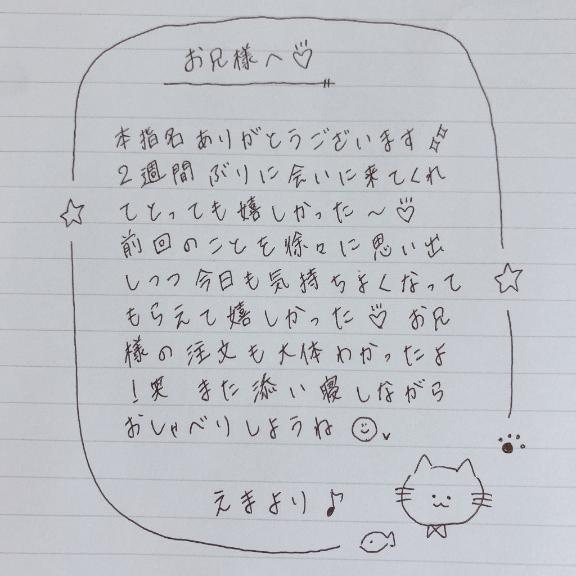 お兄様へ♡
本指名ありがとうございます
2週間ぶりに会いに来てくれ
てとっても嬉しかった〜♡
前回のことを徐々に思い出
しつつ今日も気持ちよくなって
もらえて嬉しかった♡ お兄
様の注文も大体わかったよ
！笑 また添い寝しながら
おしゃべりしようね
えまより♪